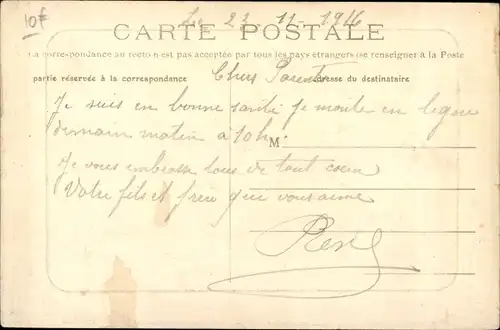 10F
Le 22-11-1916
CARTE POSTALE
La correspondance au recto n'est pas acceptée par tous les pays étrangers (se renseigner à la Poste
partie réservée à la correspondance
adresse du destinataire
Chers Parents
Je suis en bonne santé je monte en ligne
demain matin à 10h
M
Je vous embrasse tous de tout coeur
Votre fils et frère qui vous aime
René